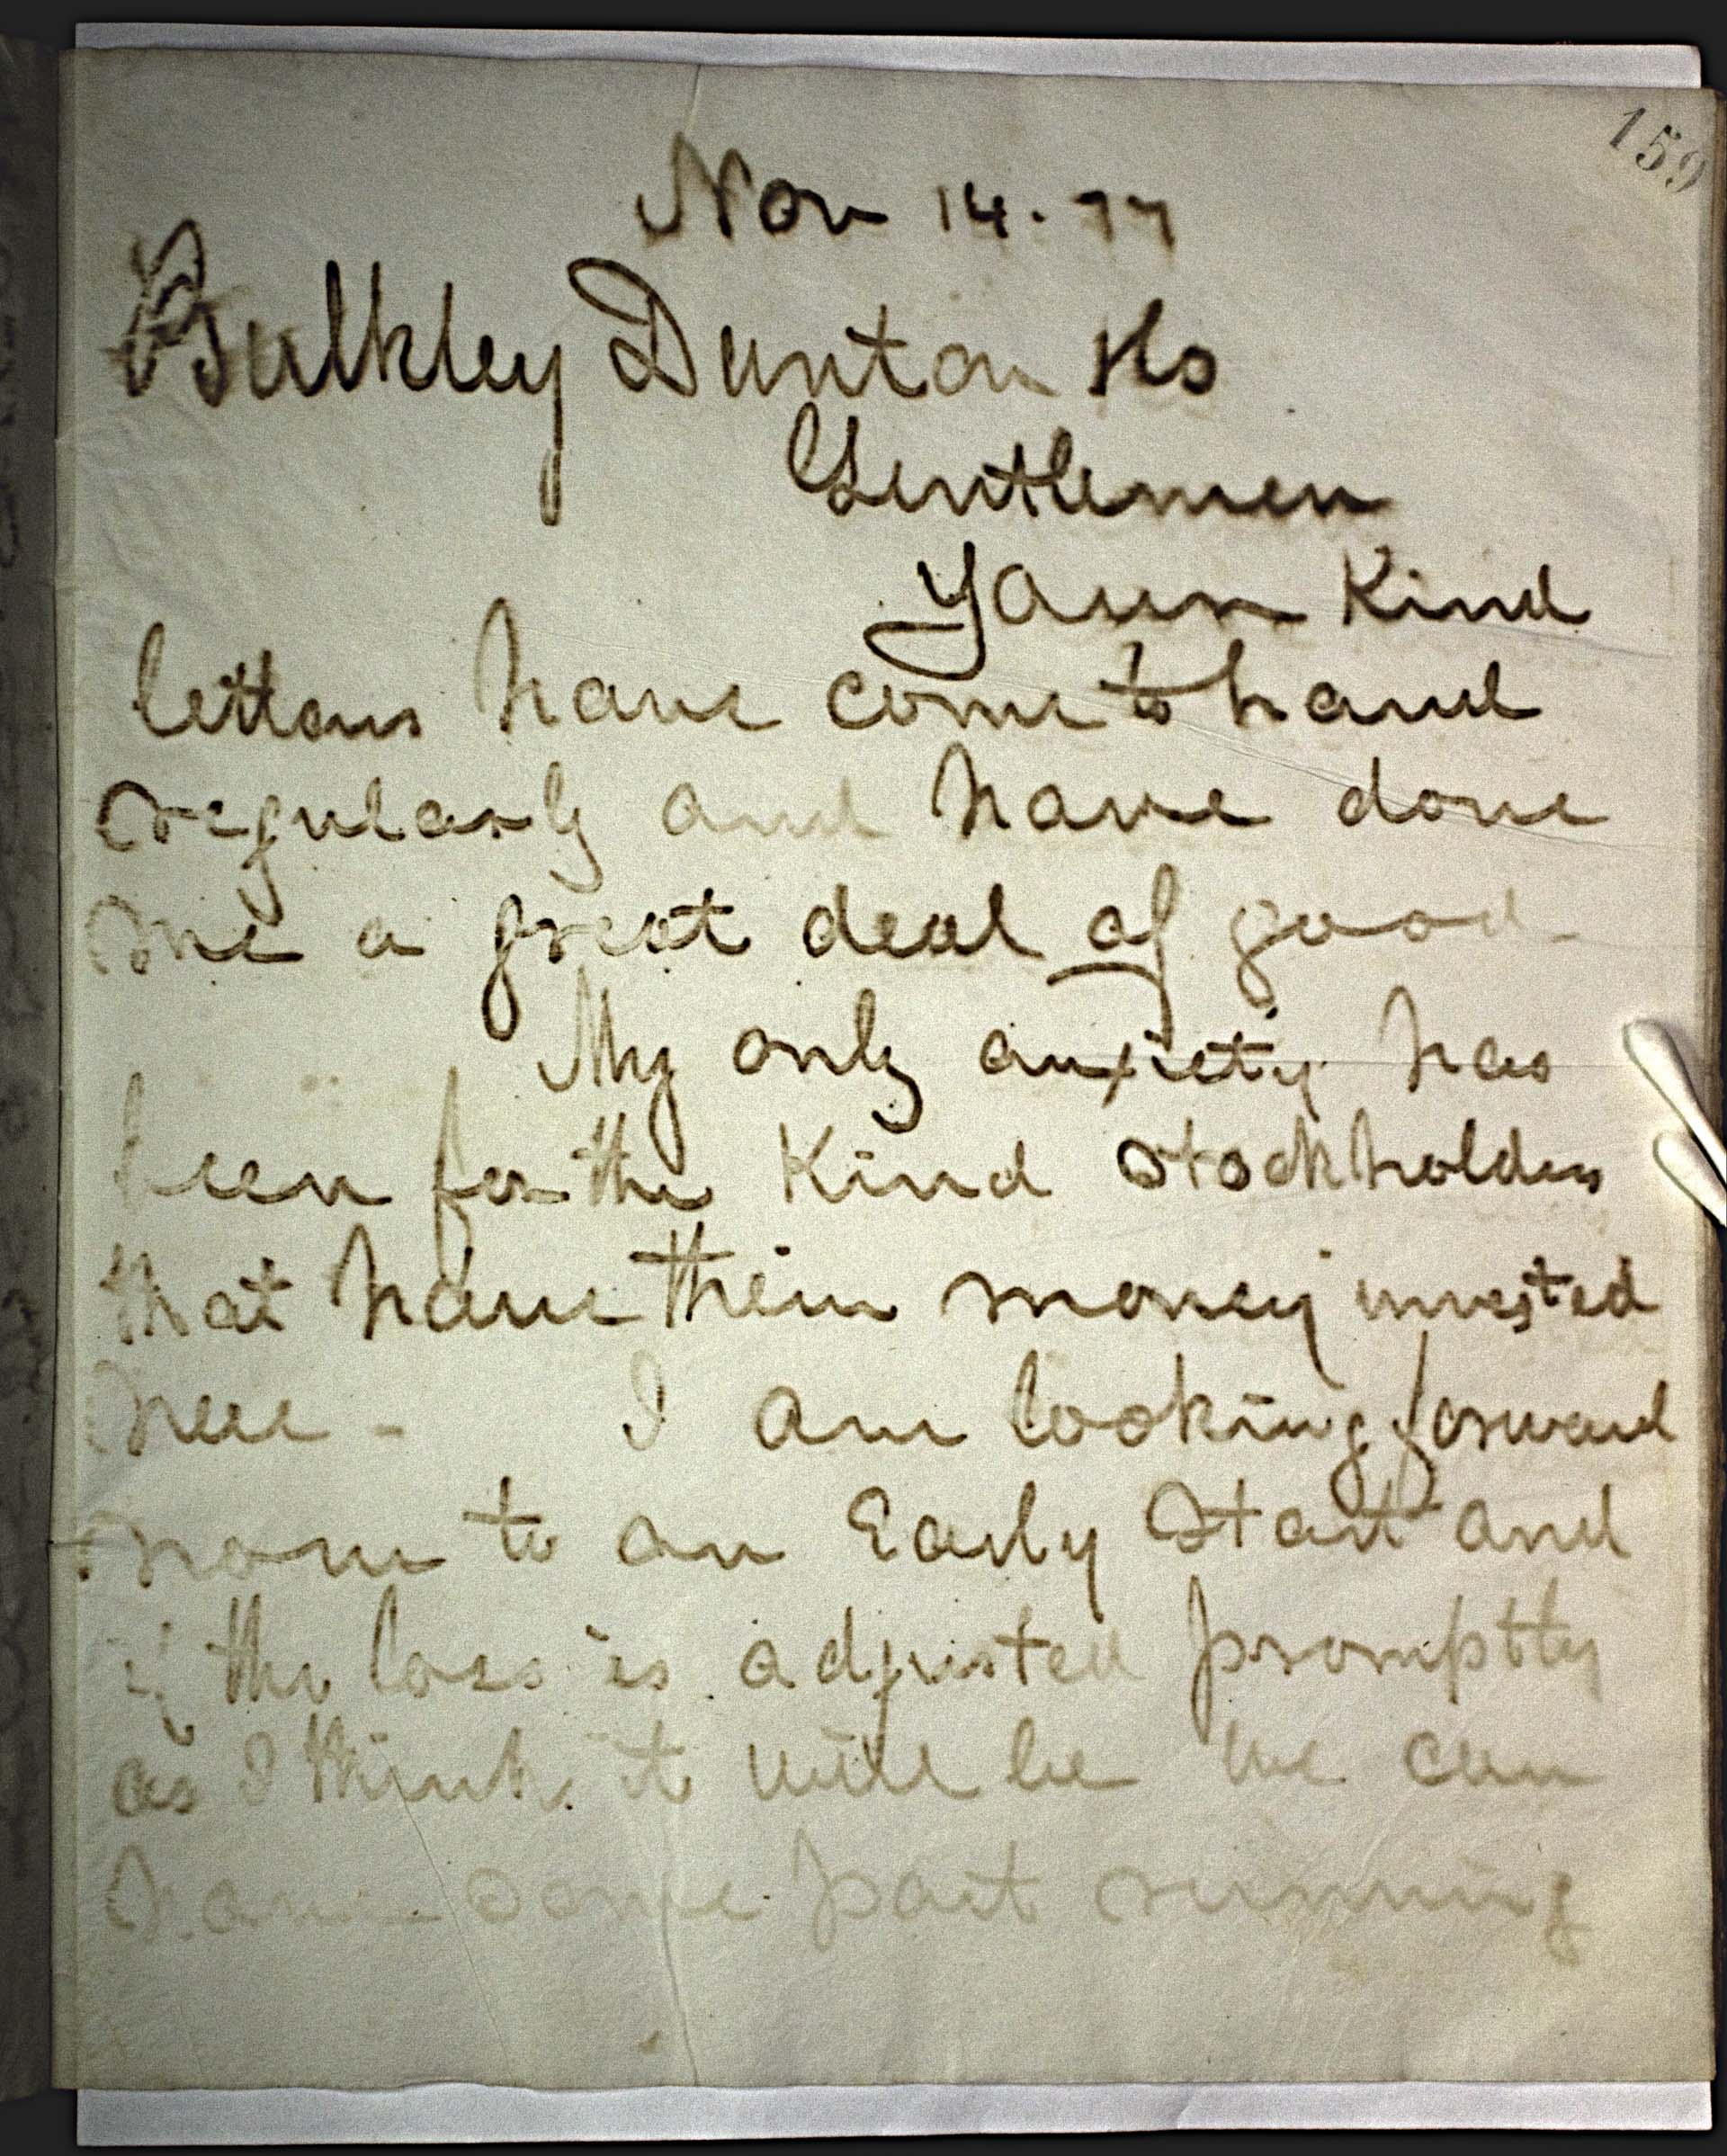 159
Nov 14 - 77
Bulkley Dunton
Gentlemen
Your Kind
letters have come to hand
regularly and have done
me a great deal of good -
My only anxiety has
been for the Kind Stockholders
that have their money invested
here - I am looking forward
now to an Early Start and
if the loss is adjusted promptly
as I think it will be we can
have some part running